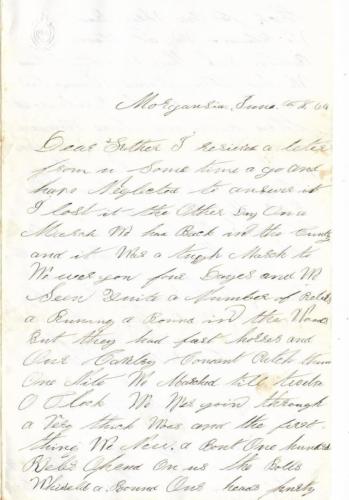 Morgansia, June th 8 64
Dear Father I recived a leter
from u Some time a go and
have Neglected to answer it
I lost it the Other Day On a
March We has Back in the Cuntry
and it Was a tugh March to
We wer gon five Dayes and We
Seen Quite a Number of Rebels
a Running a Round in the Woods
But they had fast horses and
Our Calvary Couant Catch them
One Nite We Marched till twelve
O Clock We Wer goin through
a Very thick Woods and the first
thing We New. a Bout One hundred
Rebs Opend On us the Bolts
Whiseld a Round Our heads prety